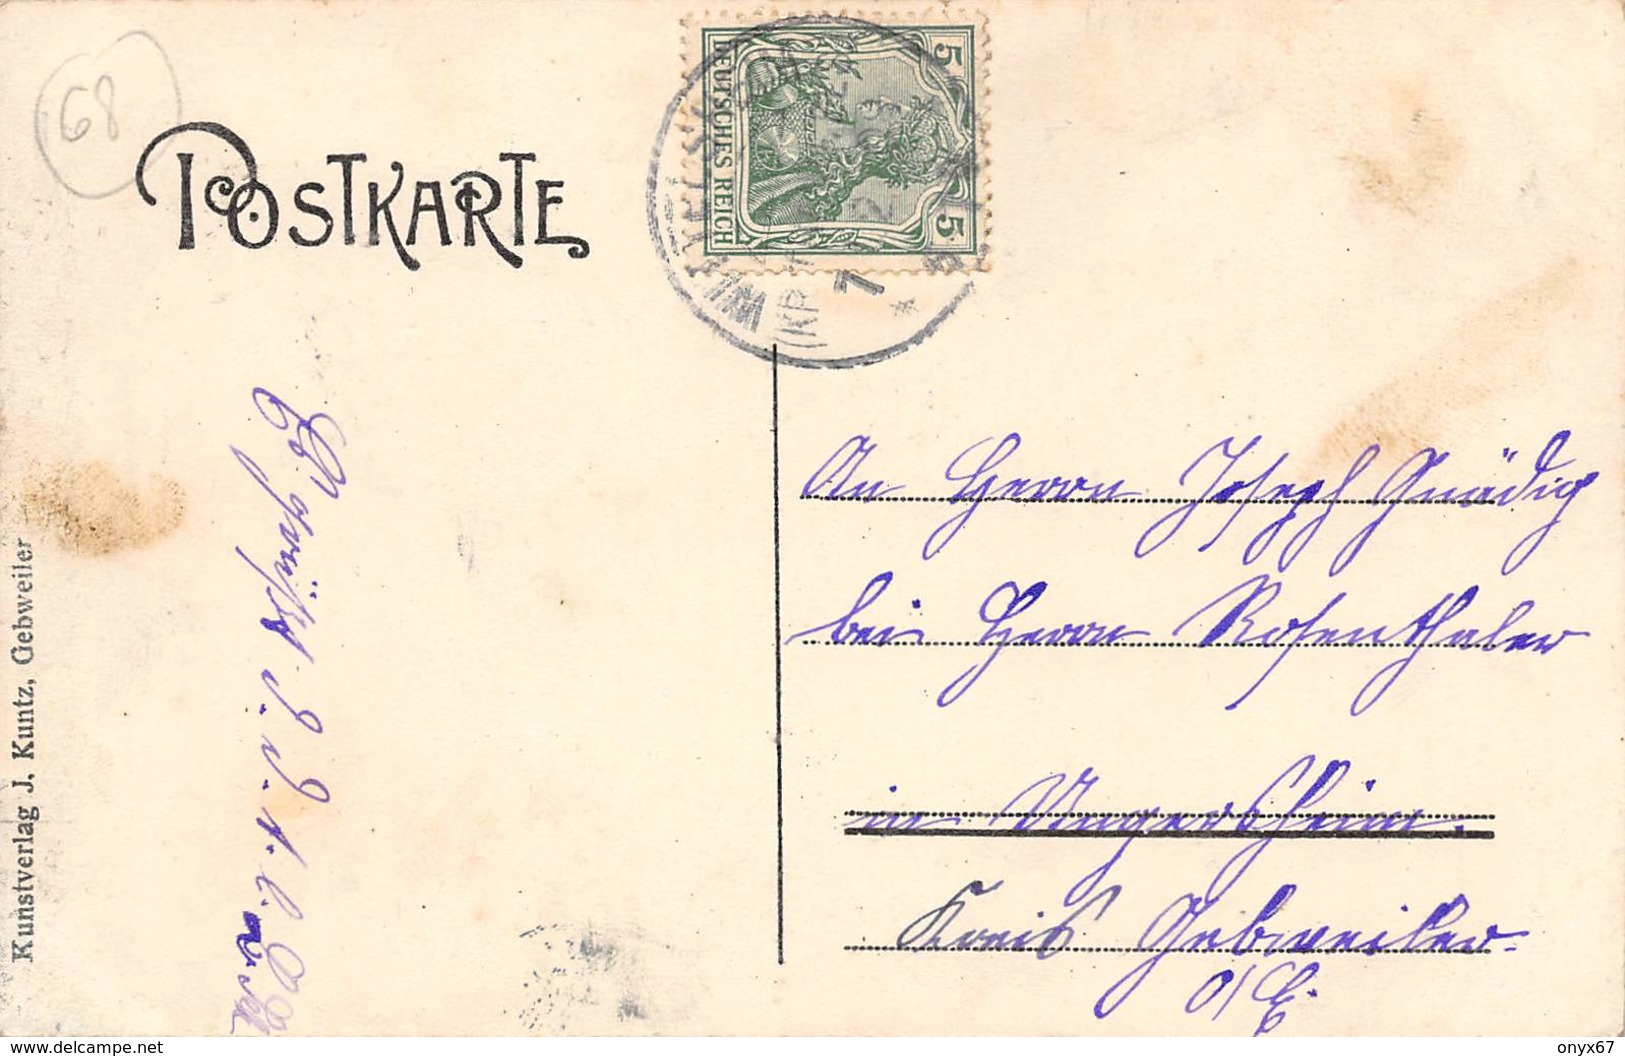 68
POSTKARTE
DEUTSCHES REICH
5 5
7
Kunstverlag J. Kuntz, Gebweiler
Es grüßt
An Herrn Joseph Gnädig
bei Herrn Rosenthaler
in Ungersheim.
Kreis Gebweiler
o/E.
www.delcampe.net
onyx67